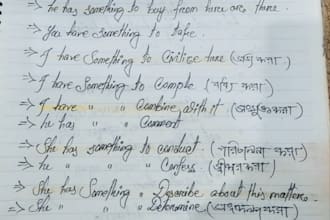 ⇒ he has something to buy from here are there.
⇒ You have something to safe.
⇒ I have Something to Civilise here
⇒ I have Something to Comple
⇒ I have " " Combine with it
⇒ he has " " Comment
⇒ She has something to conduct. (পরিচালনা করা)
⇒ he " " " Confess
⇒ She has Something " Describe about this matter.
⇒ She " " " Determine